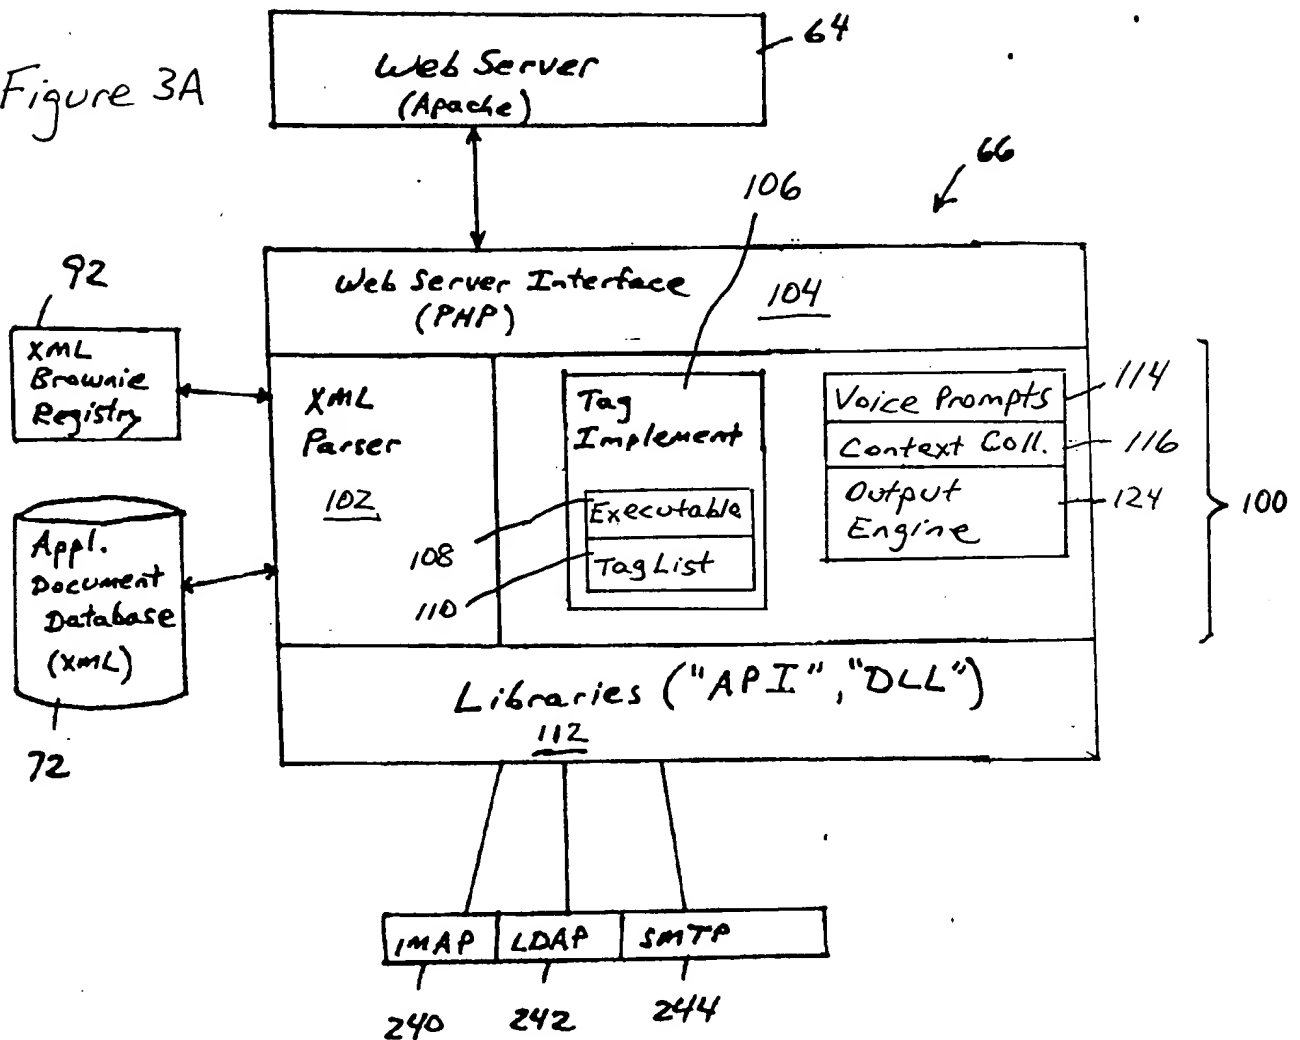 Figure 3A
Web Server
(Apache)
64
66
106
92
Web Server Interface
(PHP)
104
XML
Brownie
Registry
XML
Parser
102
Tag
Implement
Executable
Tag List
108
110
Voice Prompts
Context Coll.
Output
Engine
114
116
124
100
Appl.
Document
Database
(XML)
72
Libraries ("API","DLL")
112
IMAP
LDAP
SMTP
240
242
244